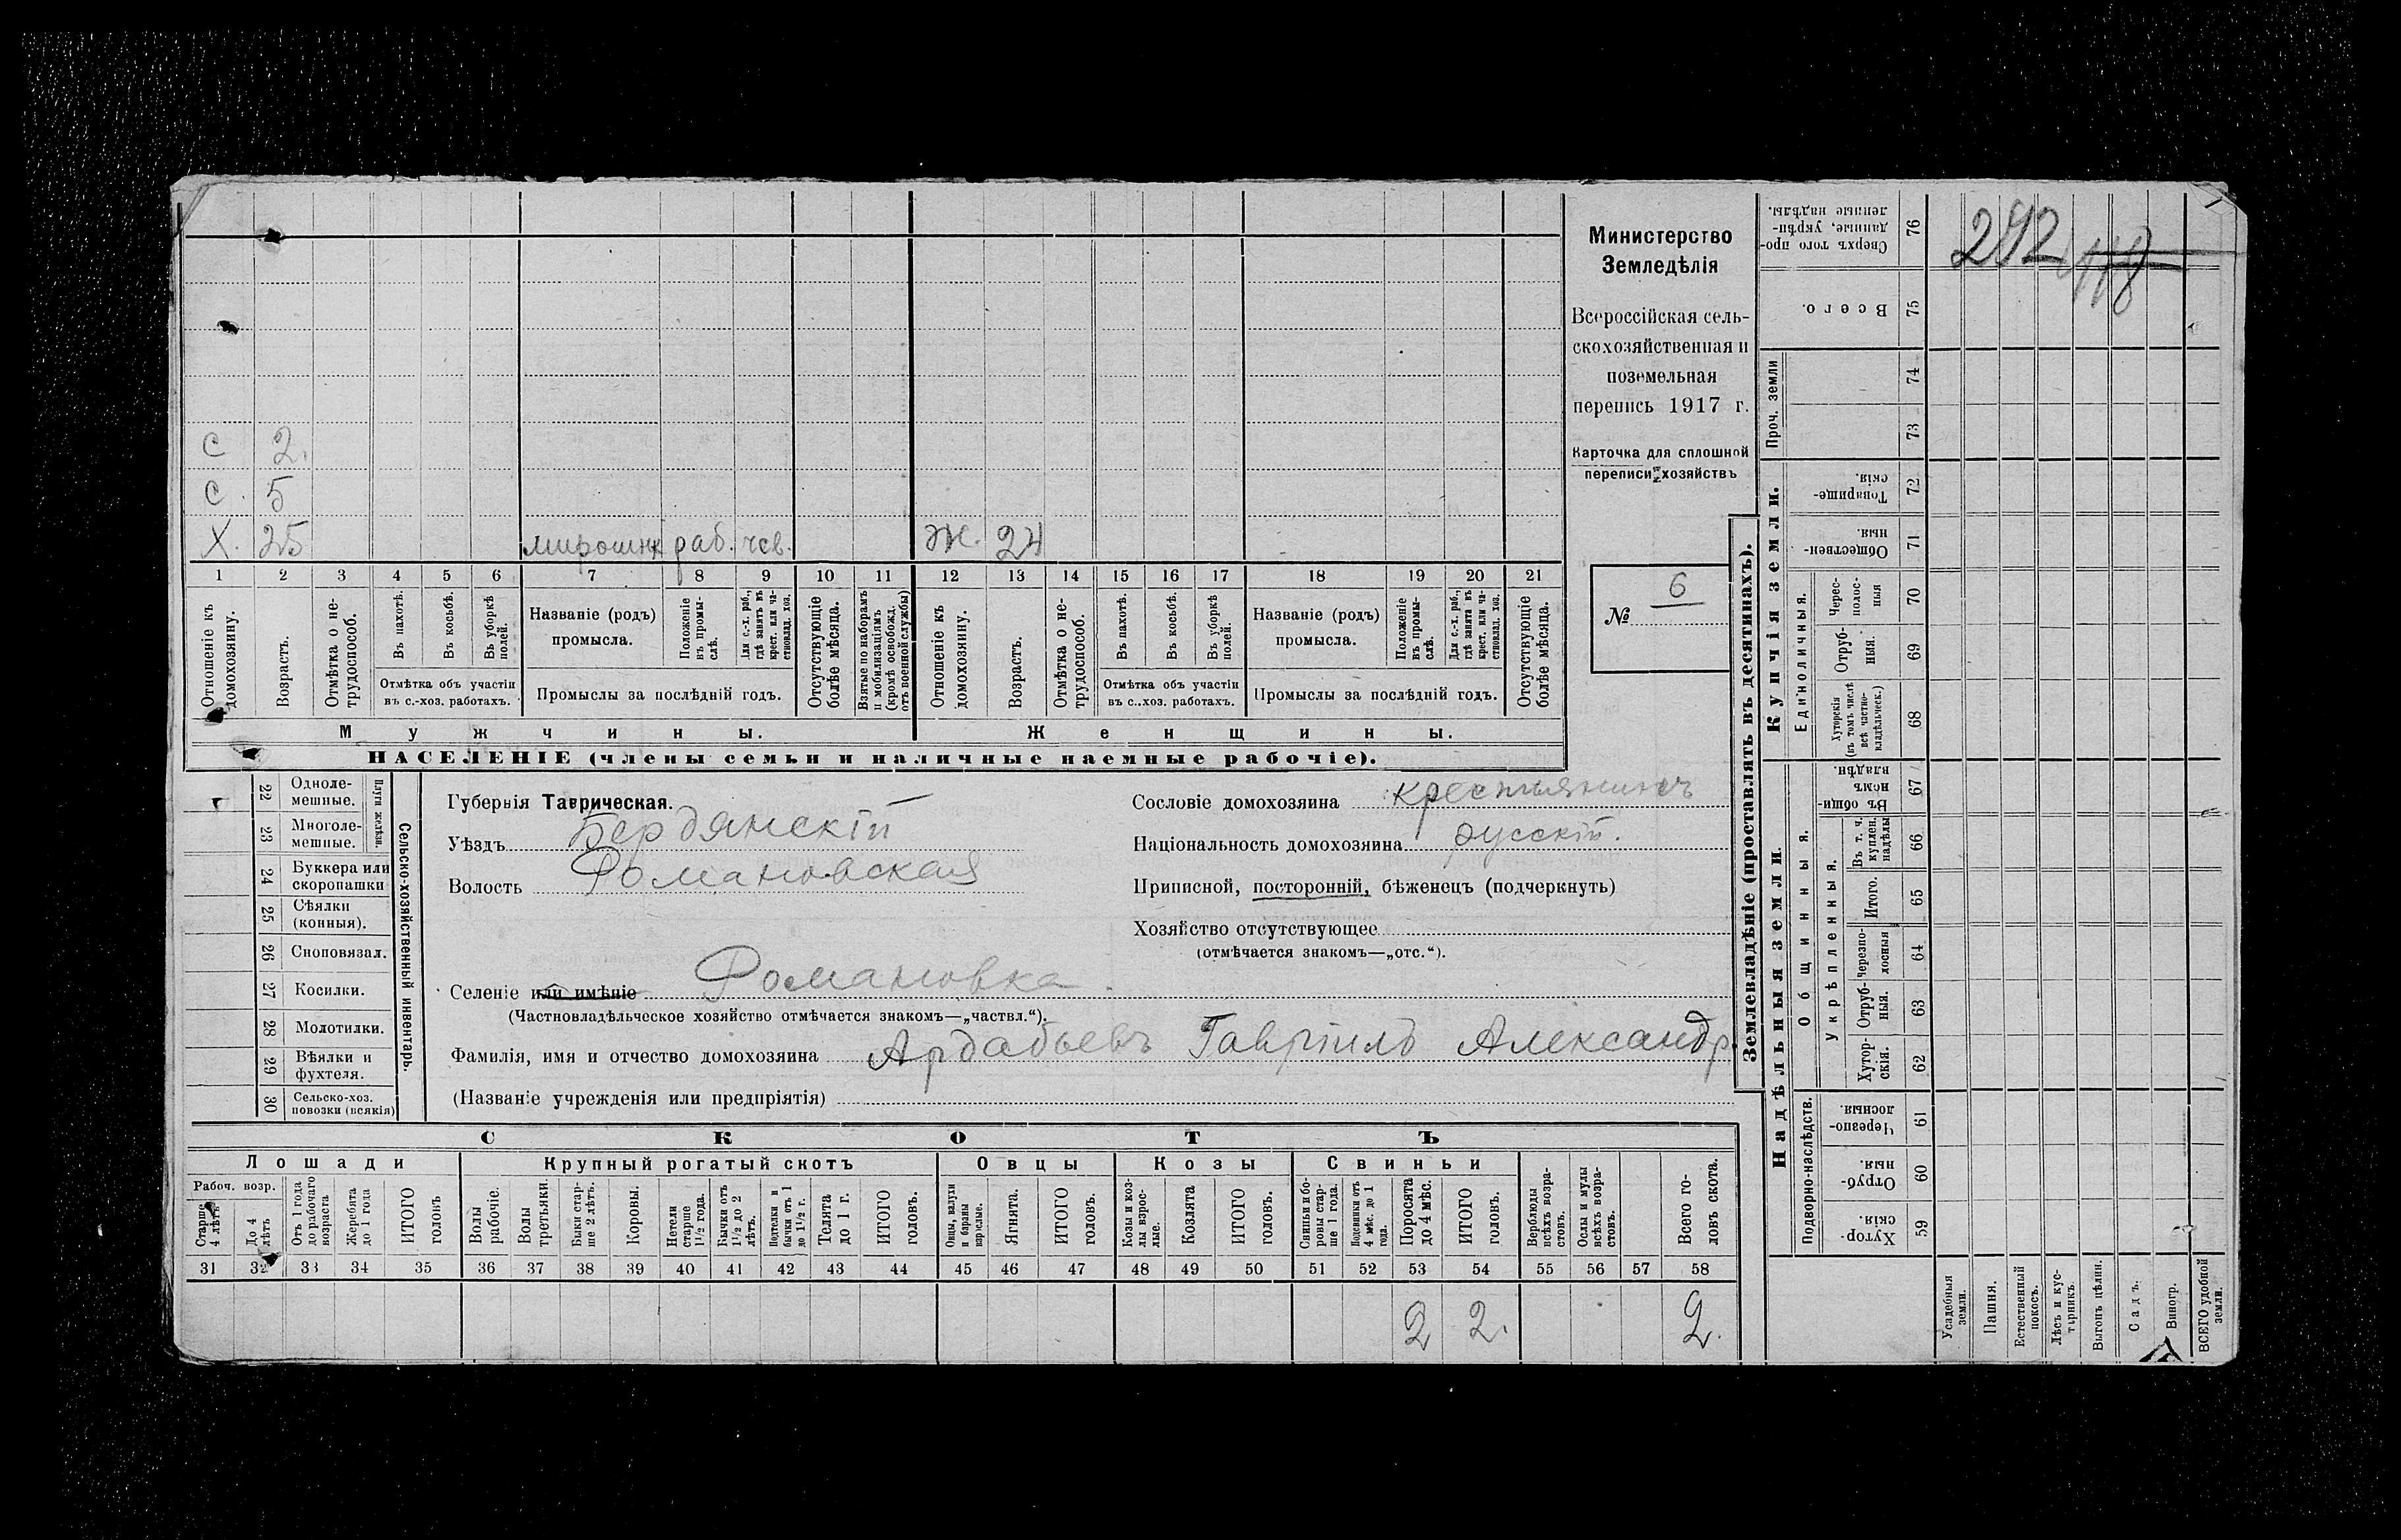 С 2.
С. 5
Х. 25 мирошник раб. Ж. 24
1 2 3 4 5 6 7 8 9 10 11 12 13 14 15 16 17 18 19 20 21
Отношеніе къ домохозяину.
Возрастъ.
Отмѣтка о не-
трудоспособ.
Въ пахотѣ.
Въ косьбѣ.
Въ уборкѣ
полей.
Отмѣтка объ участіи
въ с.-хоз. работахъ.
Названіе (родъ)
промысла.
Положеніе
въ промы-
слѣ.
Для с.-х. раб.,
гдѣ занятъ въ
крест. или ча-
стновлад. хоз.
Промыслы за послѣдній годъ.
Отсутствующіе
болѣе мѣсяца.
Взятые по наборамъ
и мобилизаціямъ
(кромѣ освобожд.
отъ военной службы)
Отношеніе къ
домохозяину.
Возрастъ.
Отмѣтка о не-
трудоспособ.
Въ пахотѣ.
Въ косьбѣ.
Въ уборкѣ
полей.
Отмѣтка объ участіи
въ с.-хоз. работахъ.
Названіе (родъ)
промысла.
Положеніе
въ промы-
слѣ.
Для с.-х. раб.,
гдѣ занята въ
крест. или ча-
стновлад. хоз.
Промыслы за послѣдній годъ.
Отсутствующіе
болѣе мѣсяца.
Мужчины. Женщины.
НАСЕЛЕНІЕ (члены семьи и наличные наемные рабочіе).
Министерство
Земледѣлія
Всероссійская сель-
скохозяйственная и
поземельная
перепись 1917 г.
Карточка для сплошной
переписи хозяйствъ
№ 6
22 Одноле-
мешные.
23 Многоле-
мешные.
Плуги желѣзн.
24 Буккера или
скоропашки
25 Сѣялки
(конныя).
26 Сноповязал.
27 Косилки.
28 Молотилки.
29 Вѣялки и
фухтеля.
30 Сельско-хоз.
повозки (всякія)
Сельско-хозяйственный инвентарь.
Губернія Таврическая.
Уѣздъ Бердянскій
Волость Романовская
Селеніе или имѣніе Романовка.
(Частновладѣльческое хозяйство отмѣчается знакомъ—„частвл.“).
Фамилія, имя и отчество домохозяина Ардабьевъ Гавріилъ Александр.
(Названіе учрежденія или предпріятія)
Сословіе домохозяина крестьянинъ
Національность домохозяина русскій.
Приписной, посторонній, бѣженецъ (подчеркнуть)
Хозяйство отсутствующее
(отмѣчается знакомъ—„отс.“).
СКОТЪ
Лошади Крупный рогатый скотъ Овцы Козы Свиньи
Рабоч. возр.
Старше
4 лѣтъ
До 4
лѣтъ
Отъ 1 года
до рабочаго
возраста
Жеребята
до 1 года
ИТОГО
головъ
Волы
рабочіе.
Волы
третьяки.
Быки стар-
ше 2 лѣтъ.
Коровы.
Нетели
старше
1½ года.
Бычки отъ
1½ до 2
лѣтъ.
Подтелки и
бычки отъ 1
до 1½ г.
Телята
до 1 г.
ИТОГО
головъ.
Овцы, валухи
и бараны
взрослые.
Ягнята.
ИТОГО
головъ.
Козы и коз-
лы взрос-
лые.
Козлята
ИТОГО
головъ.
Свиньи и бо-
ровы стар-
ше 1 года.
Подсвинки отъ
4 мѣс. до 1
года.
Поросята
до 4 мѣс.
ИТОГО
головъ.
Верблюды
всѣхъ возра-
стовъ.
Ослы и мулы
всѣхъ возра-
стовъ.
Всего го-
ловъ скота.
31 32 33 34 35 36 37 38 39 40 41 42 43 44 45 46 47 48 49 50 51 52 53 54 55 56 57 58
2 2. 2.
Землевладѣніе (проставлять въ десятинахъ).
Надѣльныя земли. Купчія земли. Проч. земли
Подворно-наслѣдств.
Общинныя.
Укрѣпленныя.
Единоличныя.
Сверхъ того про-
данные, укрѣп-
ленные надѣлы.
76
Всего.
75
74
73
Товарище-
скія.
72
Обществен-
ныя.
71
Черес-
полос-
ныя
70
Отруб-
ныя.
69
Хуторскія
(въ томъ числѣ
всѣ частно-
владѣльческ.)
68
Въ общи-
номъ
владѣн.
67
Въ т. ч.
куплен.
надѣлы
66
Итого.
65
Черезпо-
лосныя
64
Отруб-
ныя.
63
Хутор-
скія.
62
Черезпо-
лосныя.
61
Отруб-
ныя.
60
Хутор-
скія.
59
Усадебныя
земли.
Пашня.
Естественный
покосъ.
Лѣсъ и кус-
тарникъ.
Выгонъ цѣлин.
Садъ.
Виногр.
ВСЕГО удобной
земли.
292
118